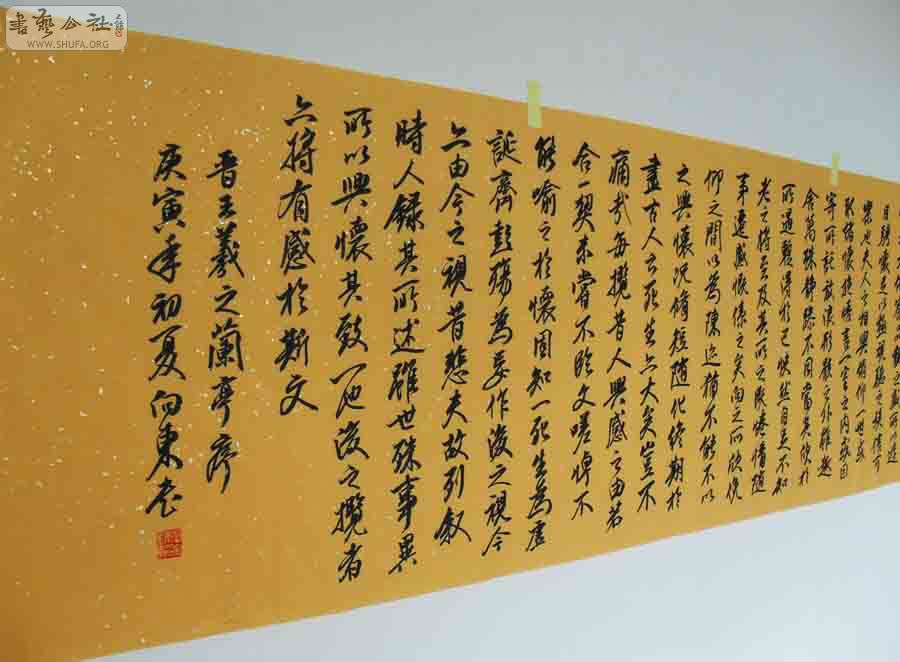 書藝公社
WWW.SHUFA.ORG
類之盛所以遊
目騁懷足以極視聽之娛信可
樂也夫人之相與俯仰一世或
取諸懷抱悟言一室之內或因
寄所託放浪形骸之外雖趣
舍萬殊靜躁不同當其欣於
所遇暫得於己快然自足不知
老之將至及其所之既惓情隨
事遷感慨係之矣向之所欣俛
仰之間以為陳迹猶不能不以
之興懷況脩短隨化終期於
盡古人云死生亦大矣豈不
痛哉每攬昔人興感之由若
合一契未嘗不臨文嗟悼不
能喻之於懷固知一死生為虛
誕齊彭殤為妄作後之視今
亦由今之視昔悲夫故列敘
時人錄其所述雖世殊事異
所以興懷其致一也後之攬者
亦將有感於斯文
晉王羲之蘭亭序
庚寅年初夏向東書